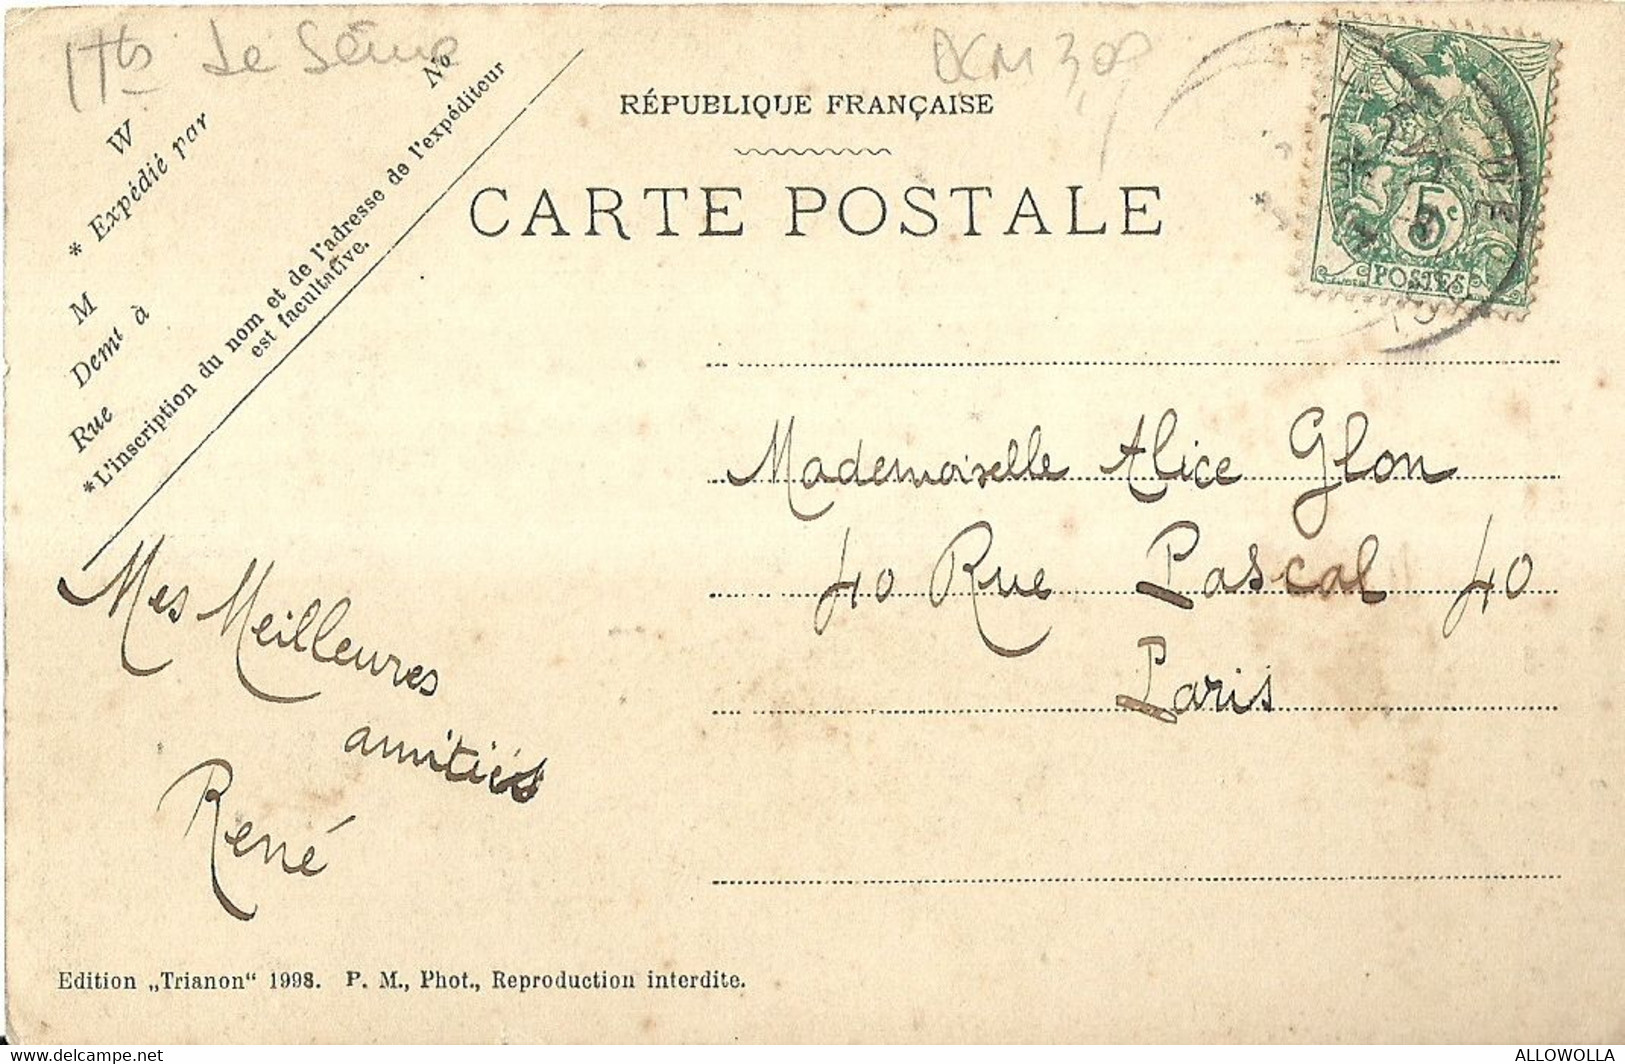 Hts de Seine
RÉPUBLIQUE FRANÇAISE
CARTE POSTALE
No
W
* Expédié par
M
Demt à
Rue
*L'inscription du nom et de l'adresse de l'expéditeur
est facultative.
5c
POSTES
Mademoiselle Alice Glon
40 Rue Pascal 40
Paris
Mes Meilleures
amitiés
René
Edition „Trianon“ 1998. P. M., Phot., Reproduction interdite.
allowolla on www.delcampe.net
ALLOWOLLA